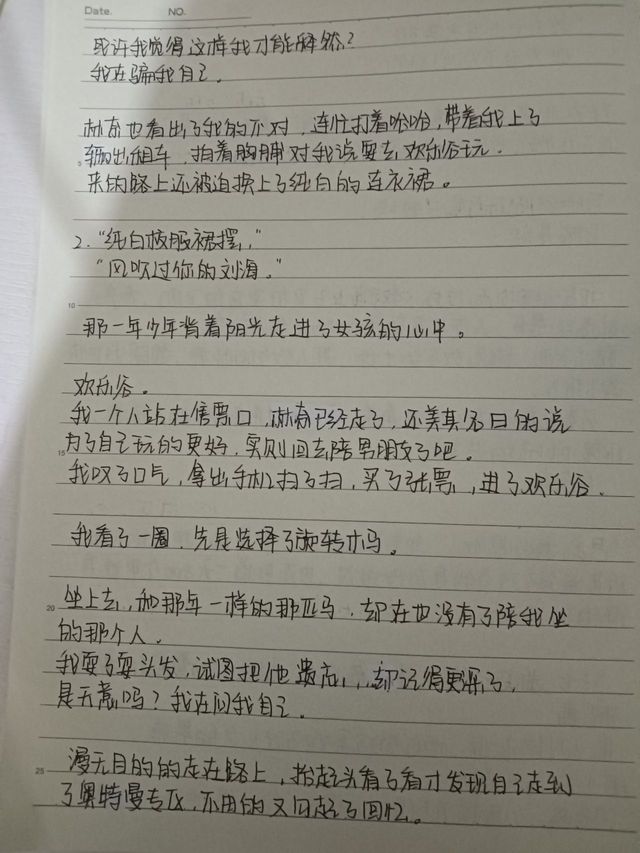 Date. NO.
或许我觉得这样我才能释然？
我在骗我自己。
林有也看出了我的不对，连忙打着哈哈，带着我上了
5 辆出租车，拍着胸脯对我说要去欢乐谷玩。
来的路上还被迫换上了纯白的连衣裙。
2."纯白校服裙摆，"
"风吹过你的刘海。"
10
那一年少年背着阳光走进了女孩的心中。
欢乐谷。
我一个人站在售票口，林有已经走了，还美其名曰的说
15 为了自己玩的更好，实则回去陪男朋友了吧。
我叹了口气，拿出手机扫了扫，买了张票，进了欢乐谷。
我看了一圈，先是选择了旋转木马。
20 坐上去，和那年一样的那匹马，却在也没有了陪我坐
的那个人。
我耍了耍头发，试图把他遗忘，却记得更深了，
是天意吗？我在问我自己。
25 漫无目的的走在路上，抬起头看了看才发现自己走到
了奥特曼专区，不由的又勾起了回忆。